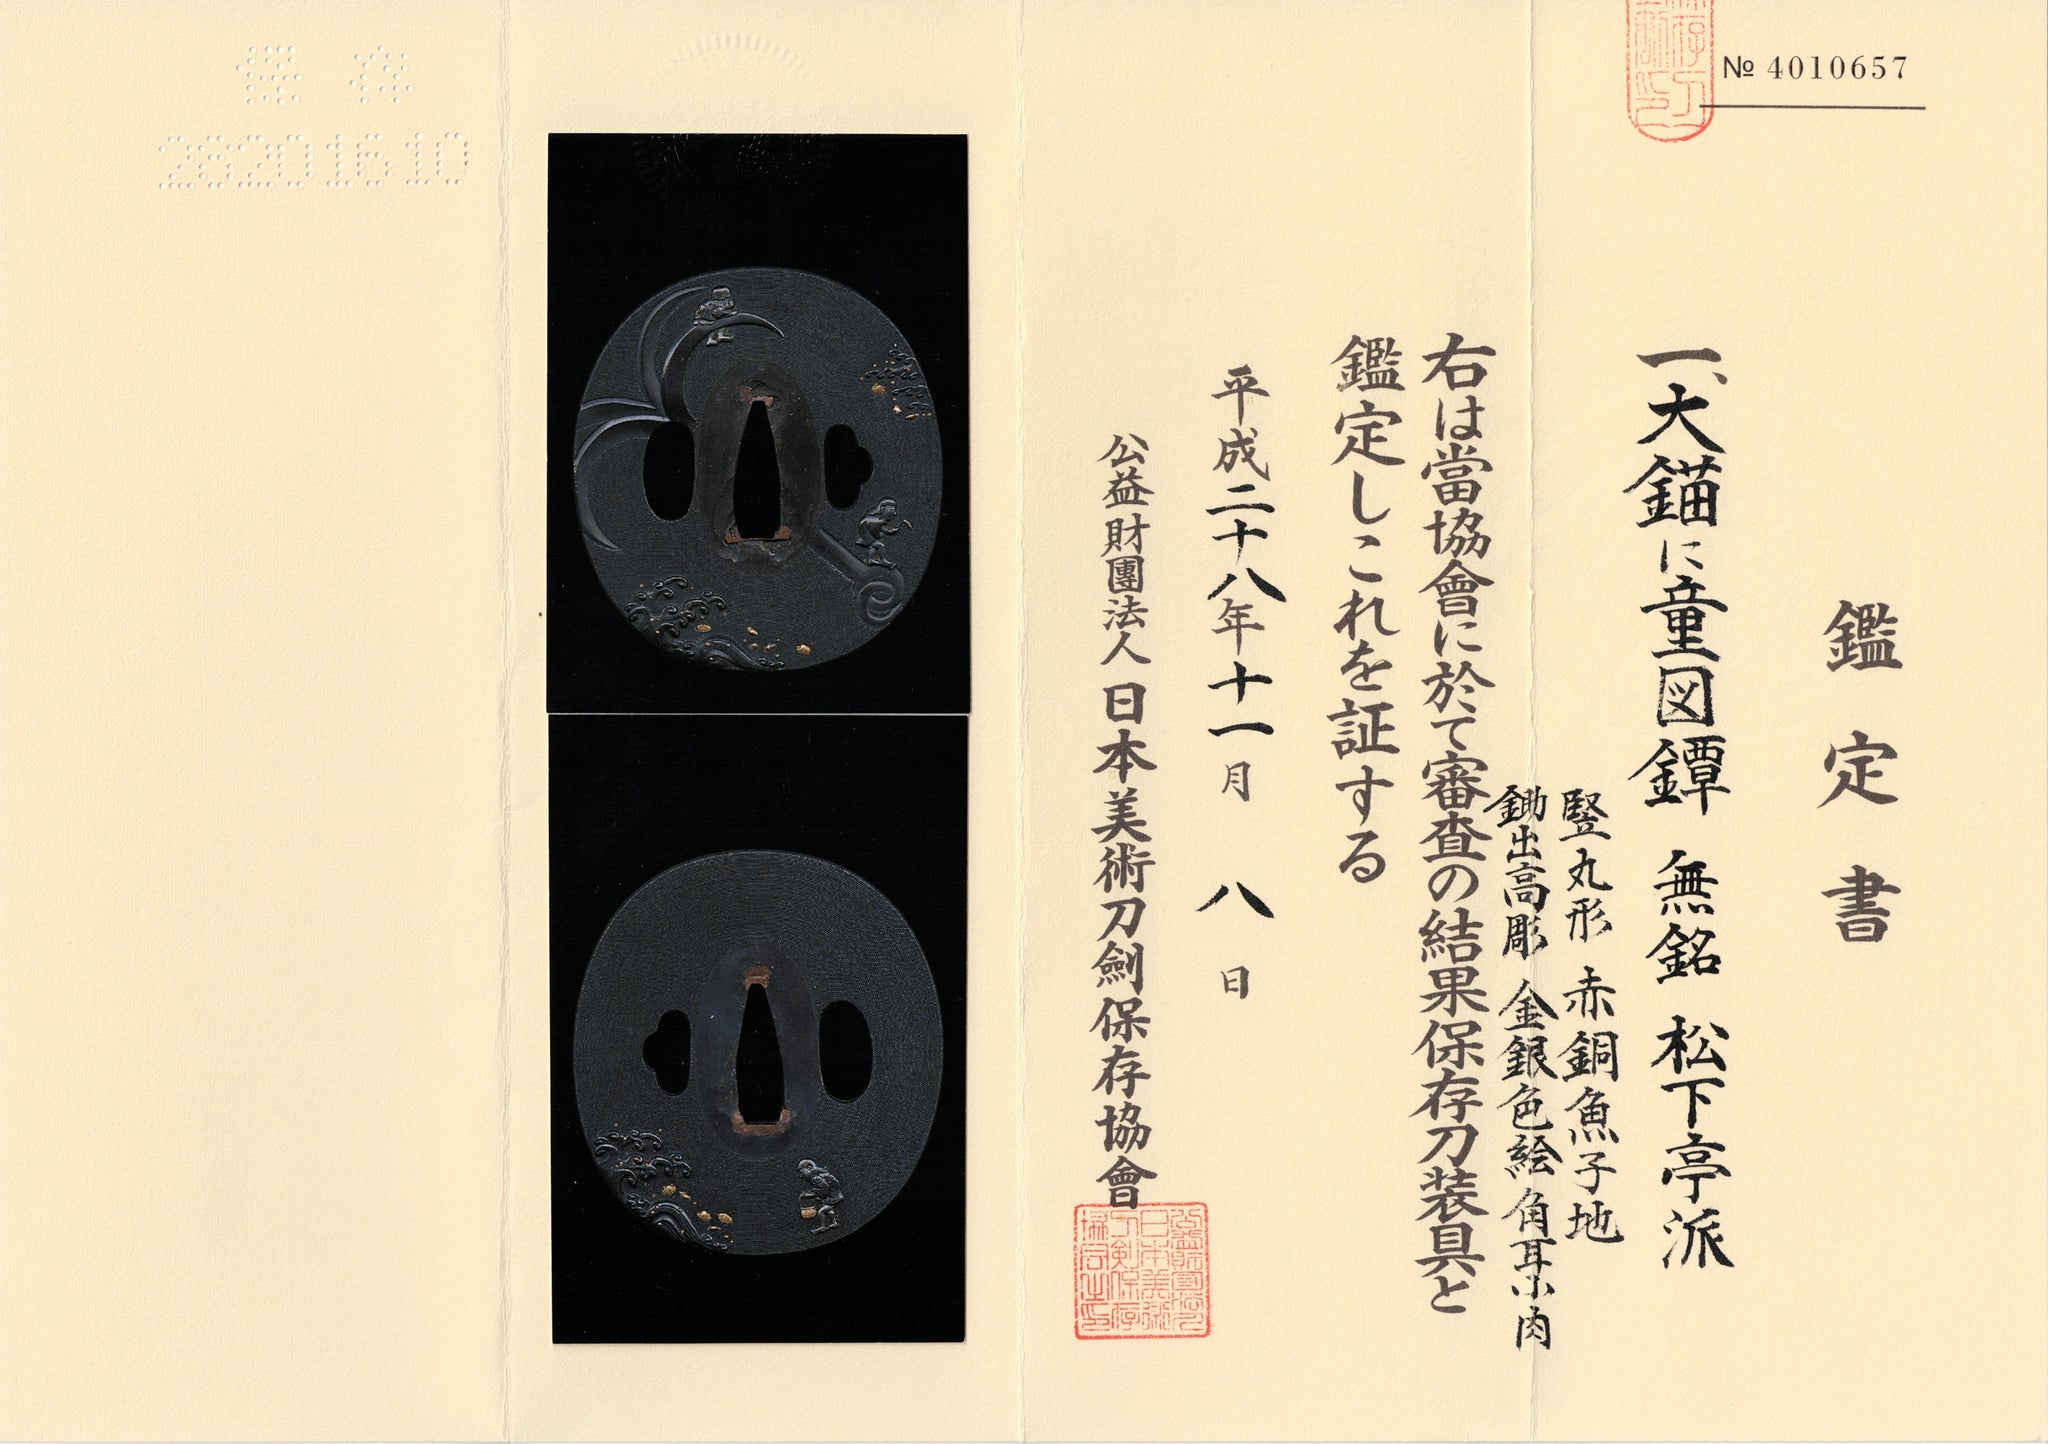 № 4010657
鑑定書
一、大錨に童図鐔 無銘 松下亭派
竪丸形 赤銅魚子地
鋤出高彫 金銀色絵 角耳小肉
右は當協會に於て審査の結果保存刀装具と
鑑定しこれを証する
平成二十八年十一月 八 日
公益財團法人 日本美術刀劍保存協會